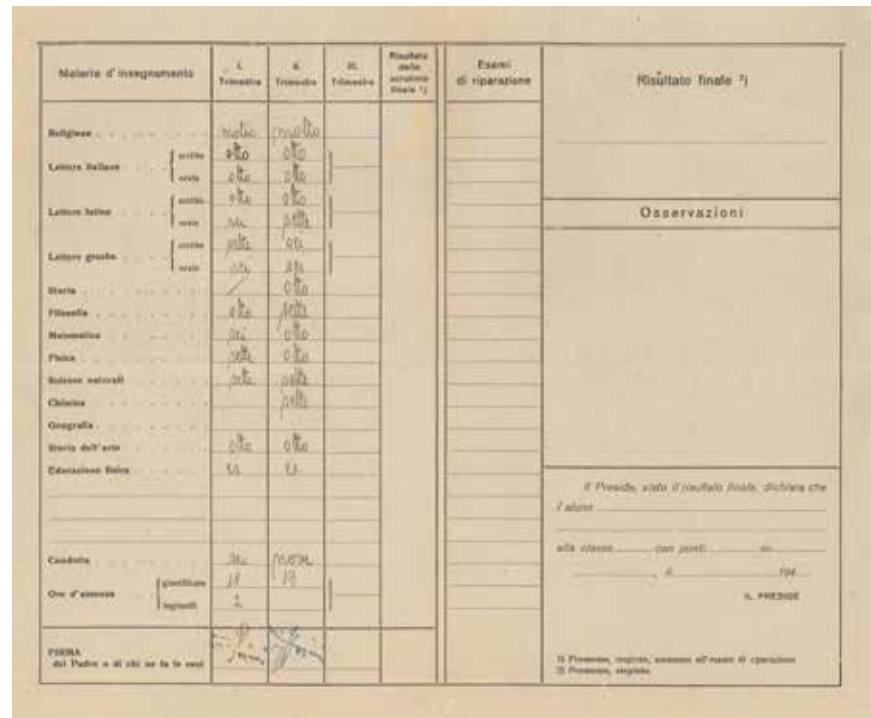 Materie d'insegnamento
I. Trimestre
II. Trimestre
III. Trimestre
Risultato dello scrutinio finale ¹)
Esami di riparazione
Risultato finale ²)
Religione molto molto
Lettere italiane scritto otto otto
orale otto otto
Lettere latine scritto otto otto
orale sei sette
Lettere greche scritto sette sei
orale sei sei
Storia otto
Filosofia otto sette
Matematica sei otto
Fisica sette otto
Scienze naturali sette sette
Chimica sette
Geografia
Storia dell'arte otto otto
Educazione fisica es es
Condotta nove
Ore d'assenza giustificate 18 13
ingiustif. 2
FIRMA
del Padre o di chi ne fa le veci
Osservazioni
Il Preside, visto il risultato finale, dichiara che
l'alunno
alla classe con punti su
, il 194
IL PRESIDE
1) Promosso, respinto, ammesso all'esame di riparazione
2) Promosso, respinto.